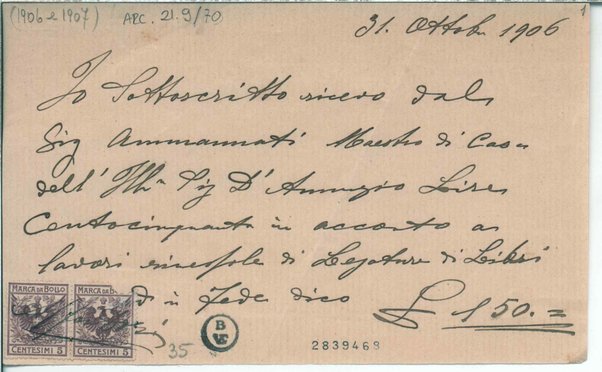 (1906 e 1907) ARC. 21.9/70 1
31. Ottobre 1906
Io Sottoscritto ricevo dal
Sig Ammannati Maestro di Casa
dell' Illº Sig D'Annunzio Lire
Centocinquanta in acconto a
lavori di Legature di Libri
in Fede dico £ 150.=
MARCA DA BOLLO MARCA DA B
CENTESIMI 5 CENTESIMI 5
35
2839468